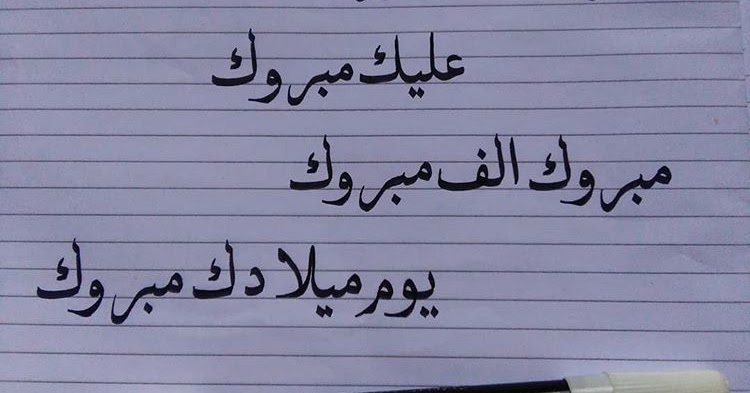 عليك مبروك
مبروك الف مبروك
يوم ميلادك مبروك